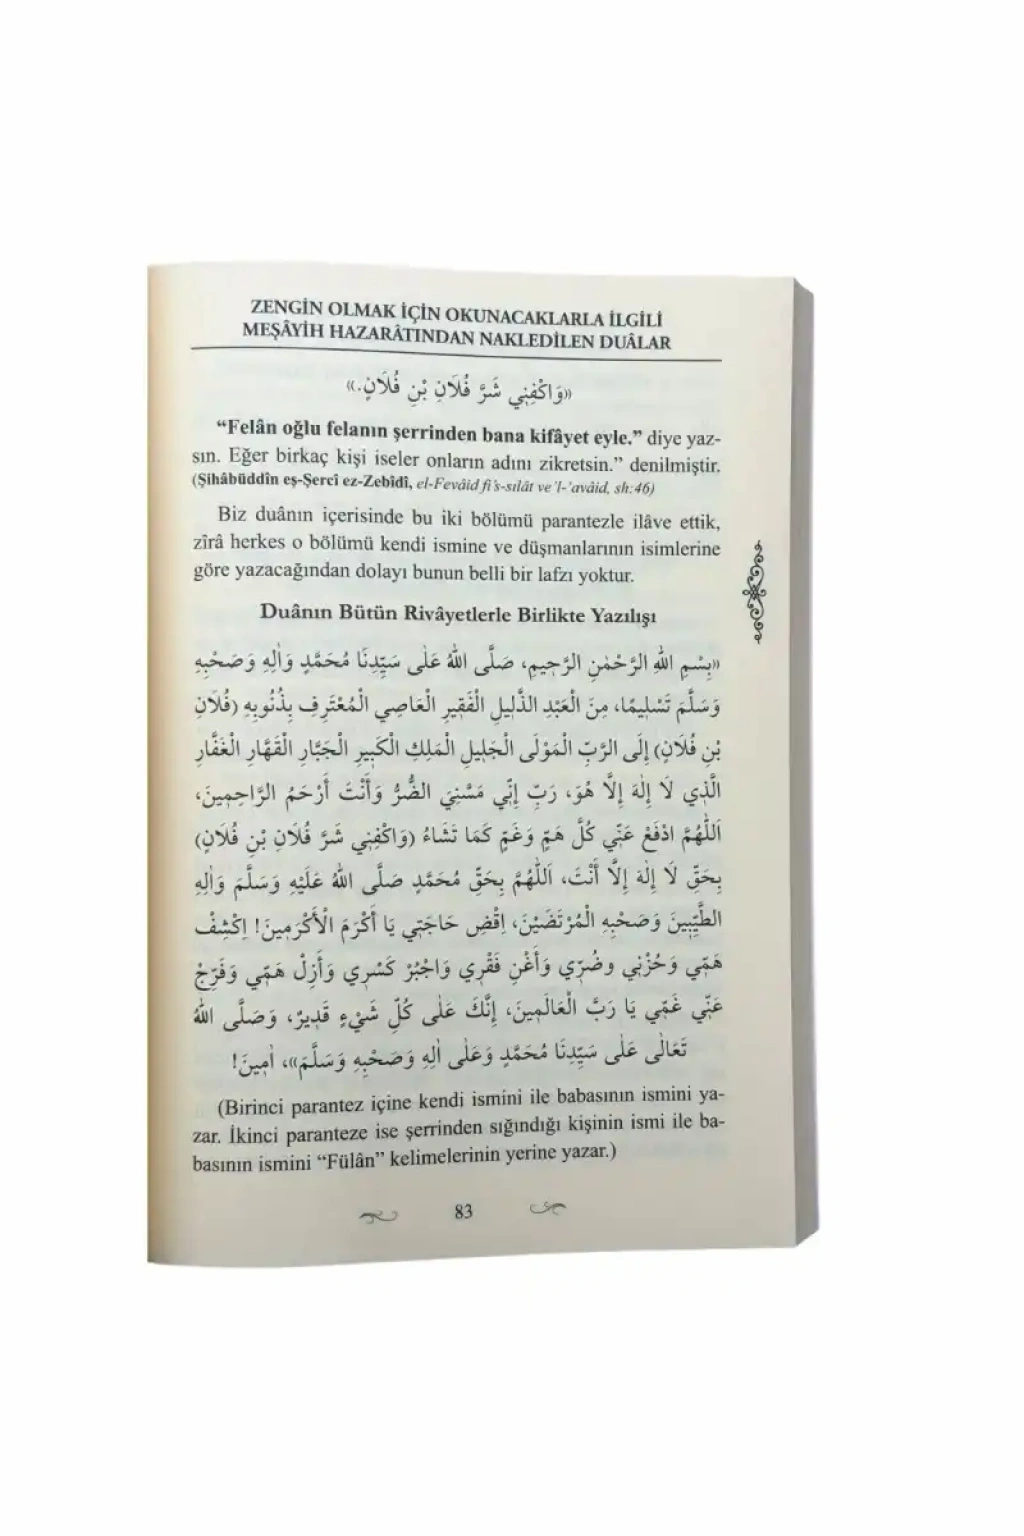 ZENGİN OLMAK İÇİN OKUNACAKLARLA İLGİLİ
MEŞÂYİH HAZARÂTINDAN NAKLEDİLEN DUÂLAR
«وَاكْفِنِي شَرَّ فُلَانِ بْنِ فُلَانٍ.»
“Felân oğlu felanın şerrinden bana kifâyet eyle.” diye yaz-
sın. Eğer birkaç kişi iseler onların adını zikretsin.” denilmiştir.
(Şihâbüddîn eş-Şercî ez-Zebîdî, el-Fevâid fi’s-sılât ve’l-‘avâid, sh:46)
Biz duânın içerisinde bu iki bölümü parantezle ilâve ettik,
zîrâ herkes o bölümü kendi ismine ve düşmanlarının isimlerine
göre yazacağından dolayı bunun belli bir lafzı yoktur.
Duânın Bütün Rivâyetlerle Birlikte Yazılışı
«بِسْمِ اللهِ الرَّحْمٰنِ الرَّحِيمِ، صَلَّى اللهُ عَلَى سَيِّدِنَا مُحَمَّدٍ وَاٰلِهِ وَصَحْبِهِ
وَسَلَّمَ تَسْلِيمًا، مِنَ الْعَبْدِ الذَّلِيلِ الْفَقِيرِ الْعَاصِي الْمُعْتَرِفِ بِذُنُوبِهِ (فُلَانِ
بْنِ فُلَانٍ) إِلَى الرَّبِّ الْمَوْلَى الْجَلِيلِ الْمَلِكِ الْكَبِيرِ الْجَبَّارِ الْقَهَّارِ الْغَفَّارِ
الَّذِي لَا إِلٰهَ إِلَّا هُوَ، رَبِّ إِنِّي مَسَّنِيَ الضُّرُّ وَأَنْتَ أَرْحَمُ الرَّاحِمِينَ،
اَللّٰهُمَّ ادْفَعْ عَنِّي كُلَّ هَمٍّ وَغَمٍّ كَمَا تَشَاءُ (وَاكْفِنِي شَرَّ فُلَانِ بْنِ فُلَانٍ)
بِحَقِّ لَا إِلٰهَ إِلَّا أَنْتَ، اَللّٰهُمَّ بِحَقِّ مُحَمَّدٍ صَلَّى اللهُ عَلَيْهِ وَسَلَّمَ وَاٰلِهِ
الطَّيِّبِينَ وَصَحْبِهِ الْمُرْتَضَيْنَ، اِقْضِ حَاجَتِي يَا أَكْرَمَ الْأَكْرَمِينَ! اِكْشِفْ
هَمِّي وَحُزْنِي وضُرِّي وَأَغْنِ فَقْرِي وَاجْبُرْ كَسْرِي وَأَزِلْ هَمِّي وَفَرِّجْ
عَنِّي غَمِّي يَا رَبَّ الْعَالَمِينَ، إِنَّكَ عَلَى كُلِّ شَيْءٍ قَدِيرٌ، وَصَلَّى اللهُ
تَعَالَى عَلَى سَيِّدِنَا مُحَمَّدٍ وَعَلَى اٰلِهِ وَصَحْبِهِ وَسَلَّمَ»، اٰمِينَ!
(Birinci parantez içine kendi ismini ile babasının ismini ya-
zar. İkinci paranteze ise şerrinden sığındığı kişinin ismi ile ba-
basının ismini “Fülân” kelimelerinin yerine yazar.)
83